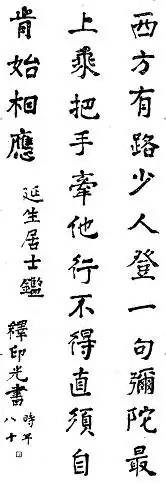 西方有路少人登一句彌陀最
上乘把手牽他行不得直須自
肯始相應
延生居士鑑
釋印光書
時年八十